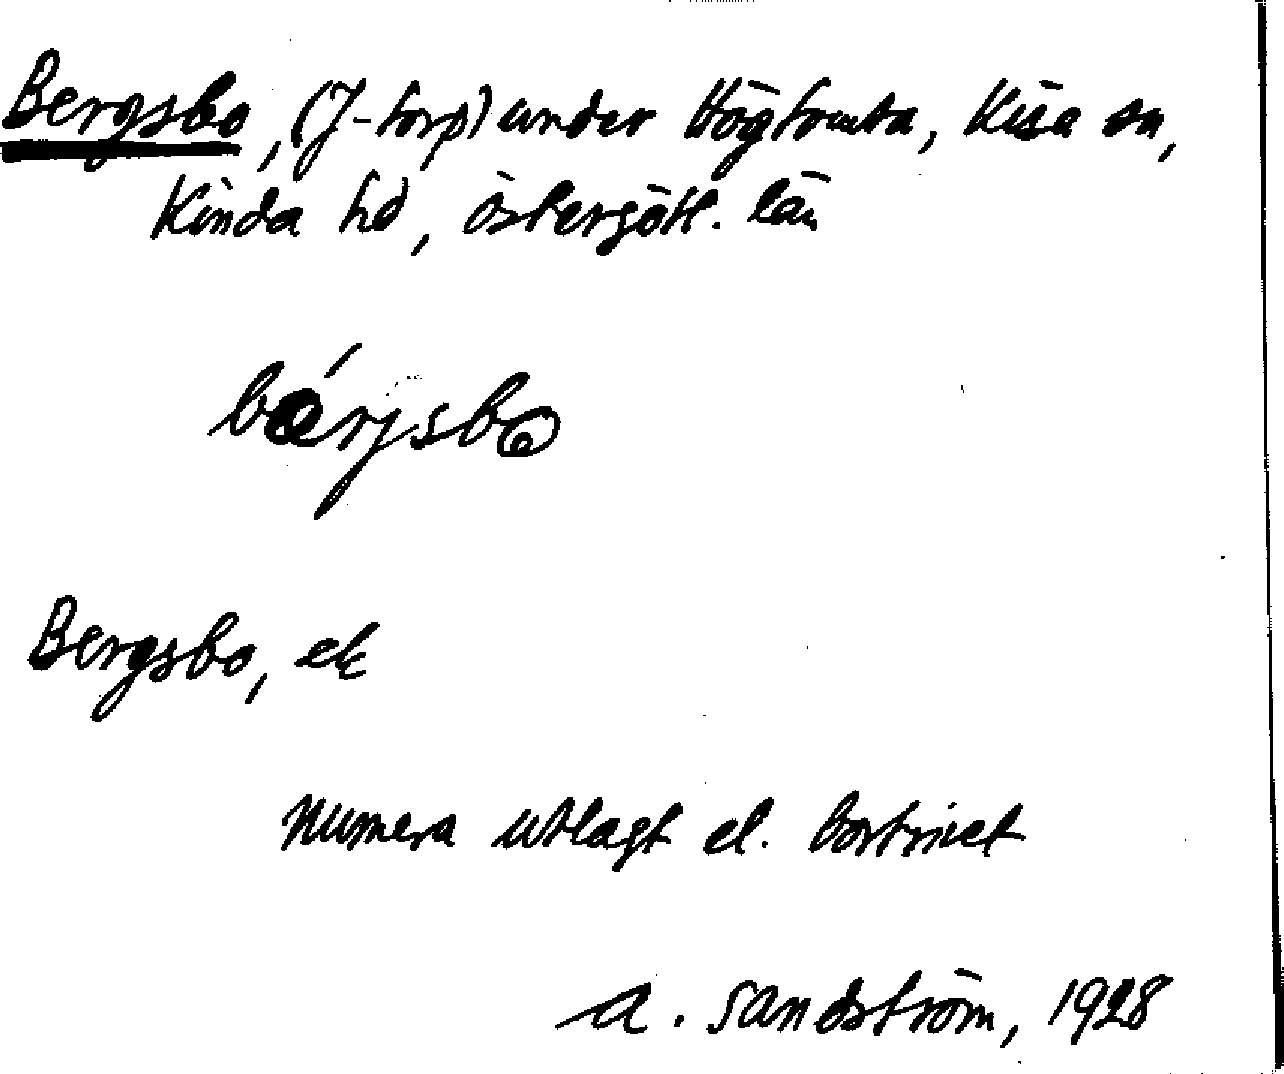 Bergsbo, (J-torp) under Högtomta, Kisa sn,
Kinda hd, Östergötl. län
bärjsbo
Bergsbo, ek
Numera utlagt el. bortrivet
A. Sandström, 1928